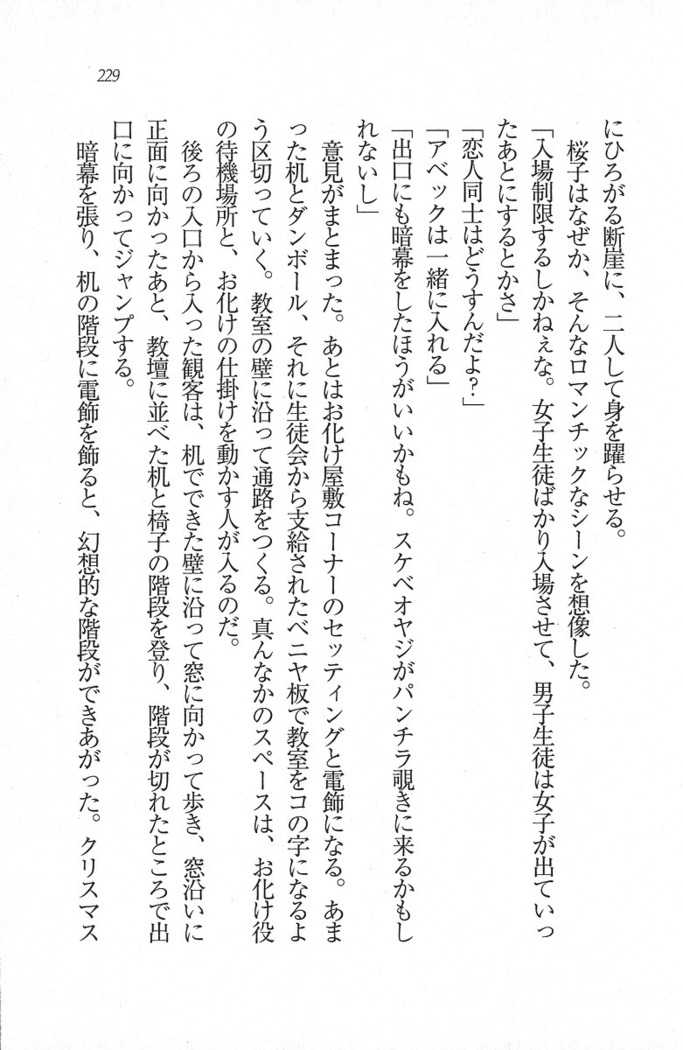 229
にひろがる断崖に、二人して身を躍らせる。
桜子はなぜか、そんなロマンチックなシーンを想像した。
「入場制限するしかねぇな。女子生徒ばかり入場させて、男子生徒は女子が出ていっ
たあとにするとかさ」
「恋人同士はどうすんだよ？」
「アベックは一緒に入れる」
「出口にも暗幕をしたほうがいいかもね。スケベオヤジがパンチラ覗きに来るかもし
れないし」
意見がまとまった。あとはお化け屋敷コーナーのセッティングと電飾になる。あま
った机とダンボール、それに生徒会から支給されたベニヤ板で教室をコの字になるよ
う区切っていく。教室の壁に沿って通路をつくる。真んなかのスペースは、お化け役
の待機場所と、お化けの仕掛けを動かす人が入るのだ。
後ろの入口から入った観客は、机でできた壁に沿って窓に向かって歩き、窓沿いに
正面に向かったあと、教壇に並べた机と椅子の階段を登り、階段が切れたところで出
口に向かってジャンプする。
暗幕を張り、机の階段に電飾を飾ると、幻想的な階段ができあがった。クリスマス